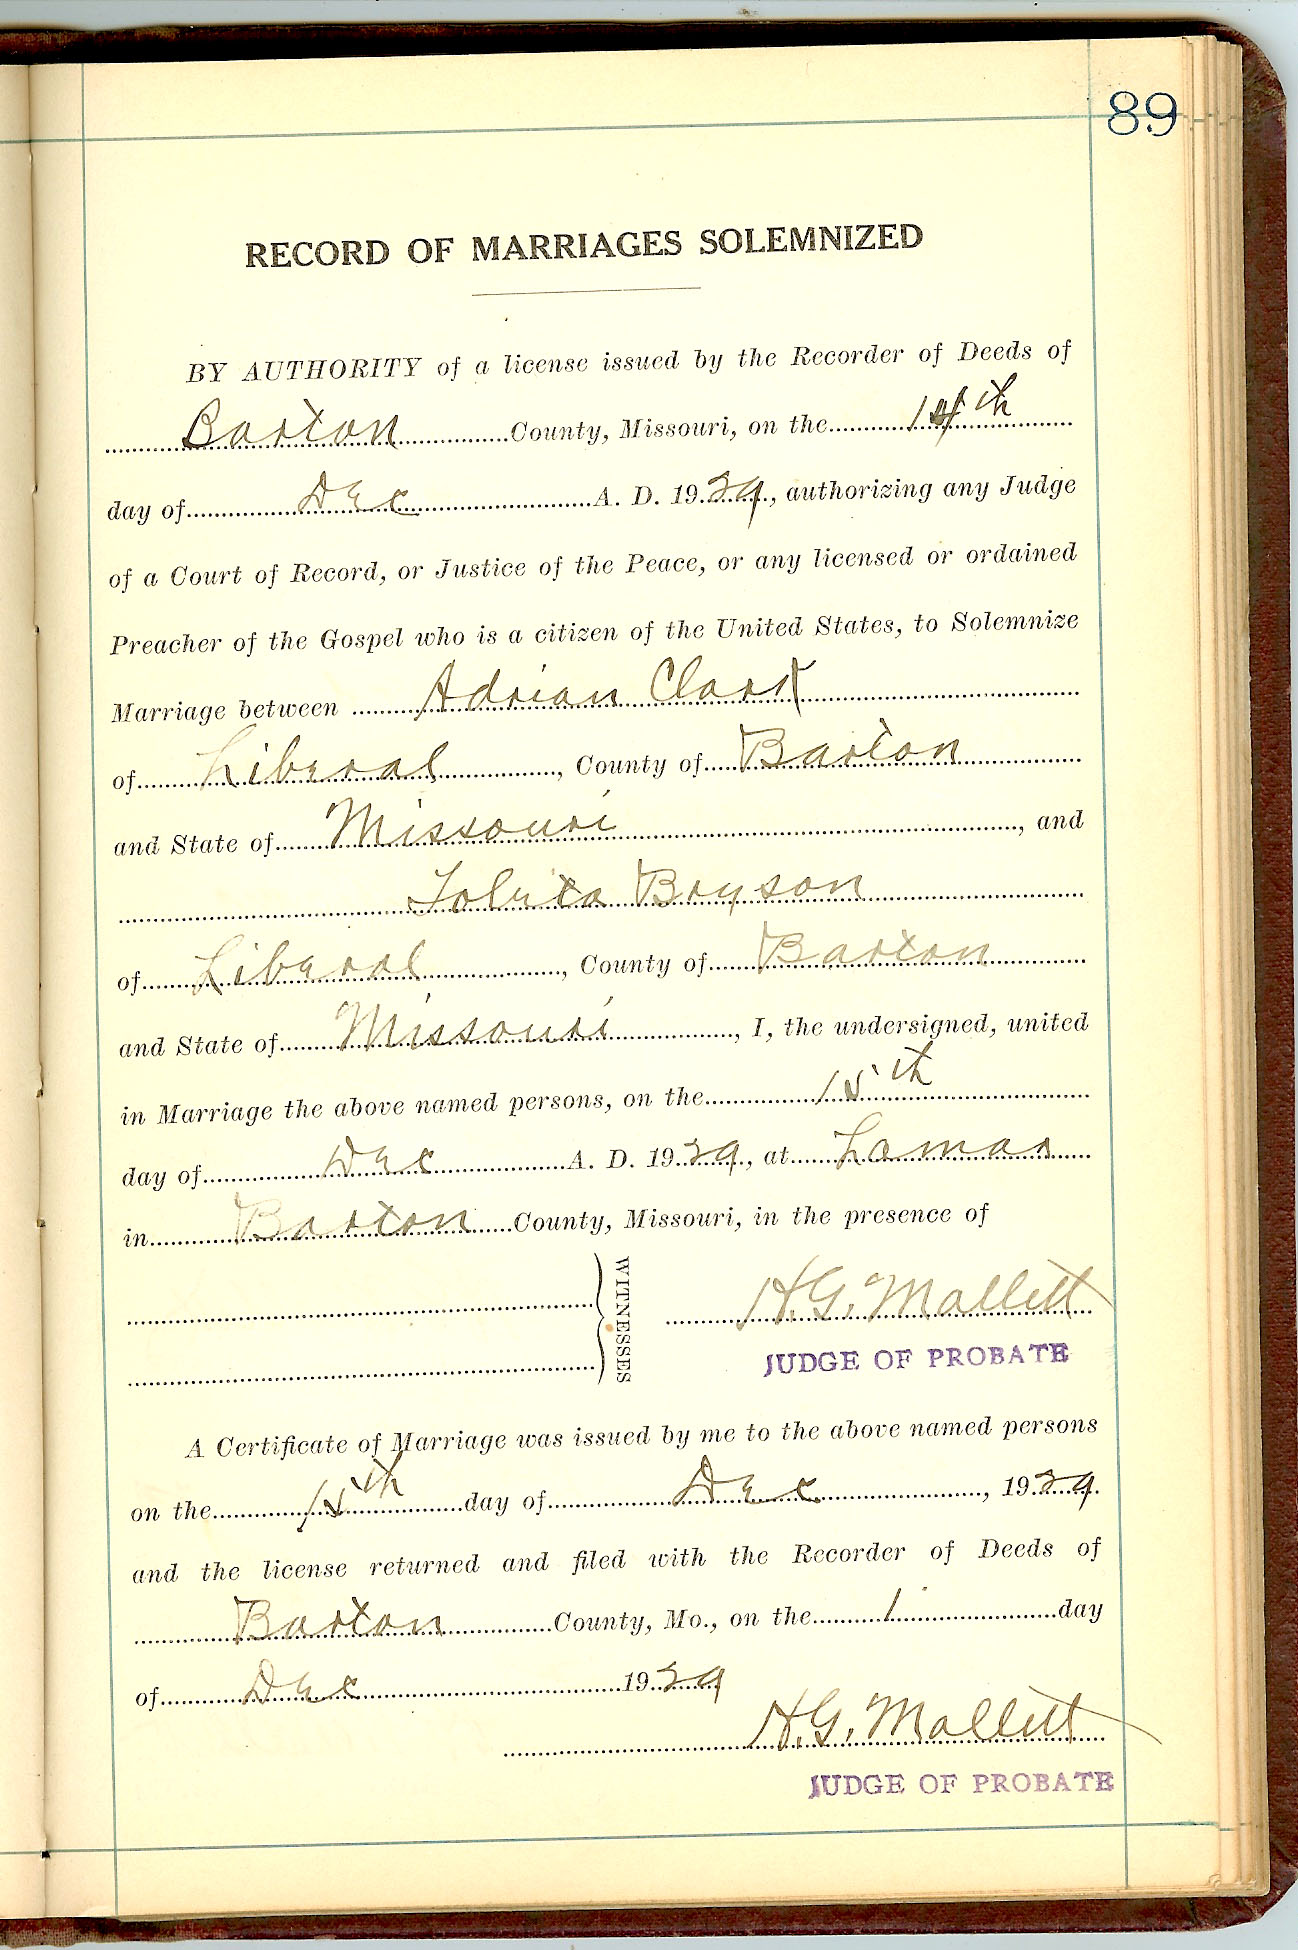 89
RECORD OF MARRIAGES SOLEMNIZED
BY AUTHORITY of a license issued by the Recorder of Deeds of
Barton County, Missouri, on the 14th
day of Dec A. D. 1929, authorizing any Judge
of a Court of Record, or Justice of the Peace, or any licensed or ordained
Preacher of the Gospel who is a citizen of the United States, to Solemnize
Marriage between Adrian Clark
of Liberal, County of Barton
and State of Missouri, and
Boyson
of Liberal, County of Barton
and State of Missouri, I, the undersigned, united
in Marriage the above named persons, on the 15th
day of Dec A. D. 1929, at Lamar
in Barton County, Missouri, in the presence of
WITNESSES
H.G. Mallett
JUDGE OF PROBATE
A Certificate of Marriage was issued by me to the above named persons
on the 15th day of Dec, 1929.
and the license returned and filed with the Recorder of Deeds of
Barton County, Mo., on the 1 day
of Dec 1929
H.G. Mallett
JUDGE OF PROBATE